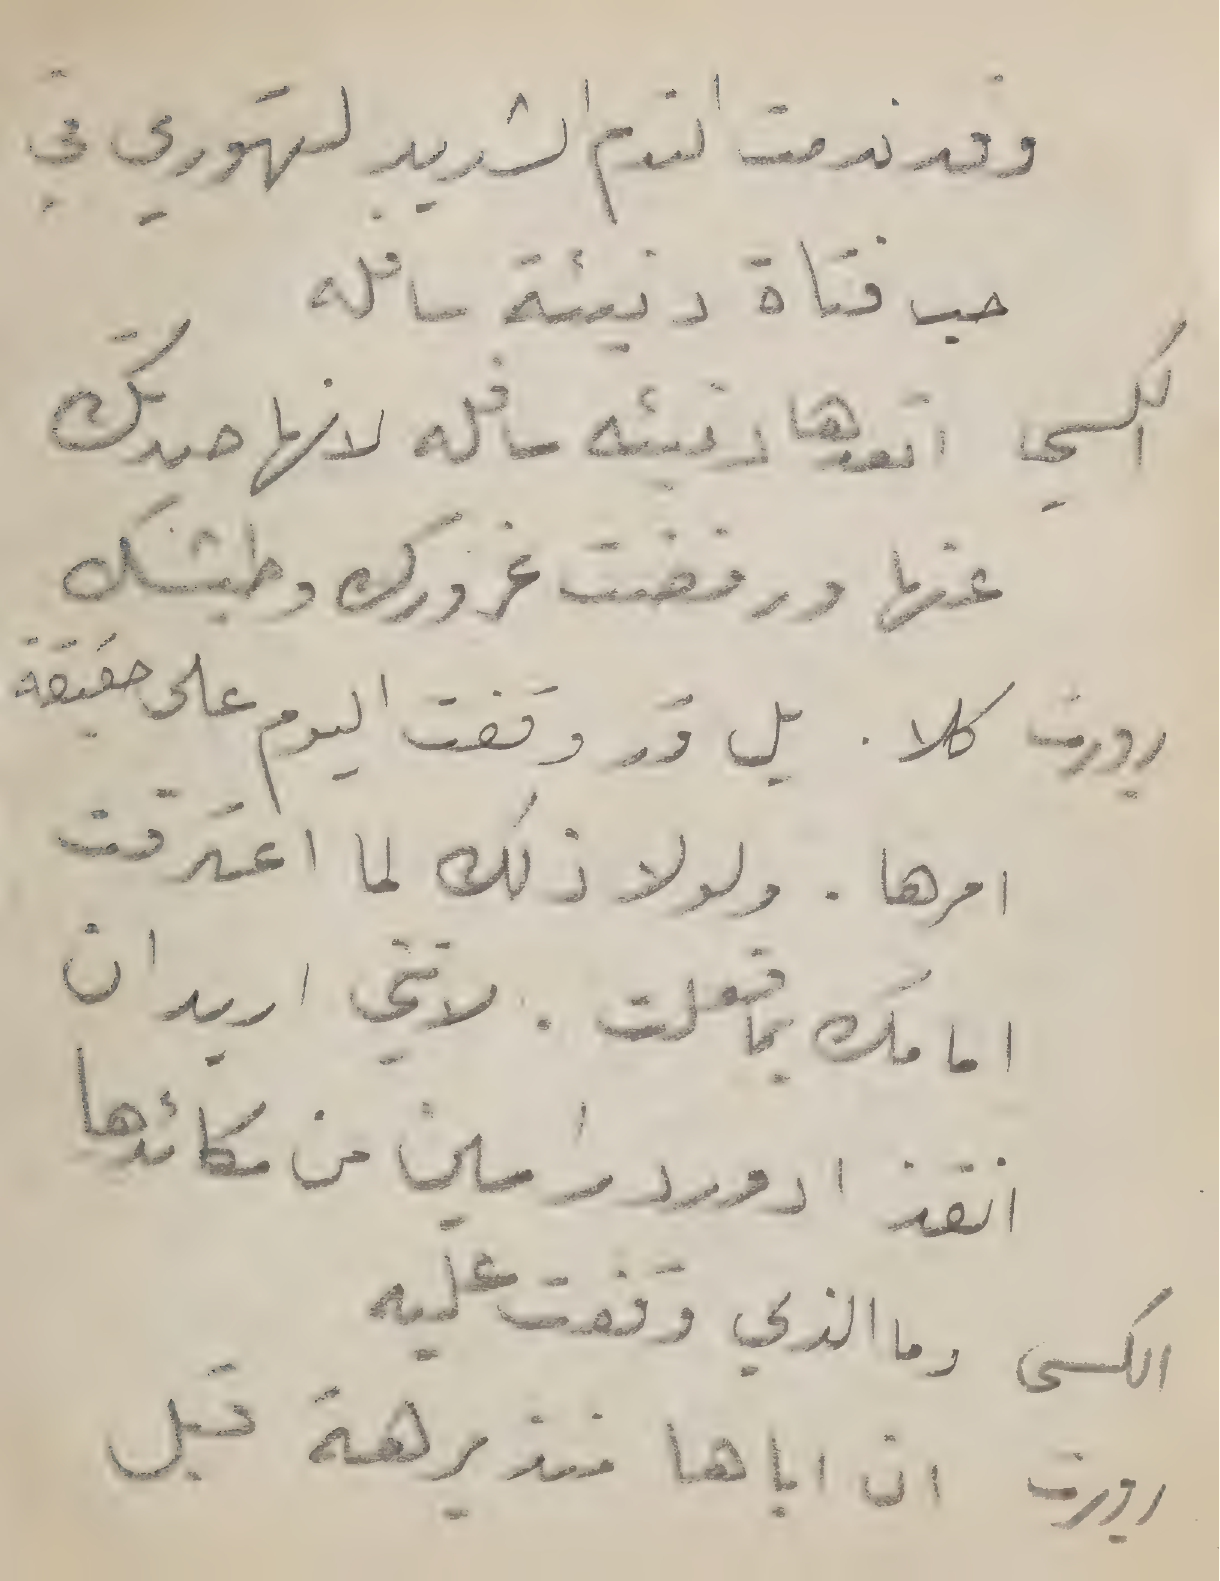 وقد ندمت الندم الشديد لتهوري في
حب فتاة دنيئة سافله
الكسي اتعدها دنيئه سافله لانها صدتك
عنها ورفضت غرورك وطيشك
روبرت كلا. بل قد وقفت اليوم على حقيقة
امرها. ولولا ذلك لما اعترفت
امامك بما فعلت. لانني اريد ان
انقذ ادورد راسلين من مكائدها
الكسي وما الذي وقفت عليه
روبرت ان اباها منذ برهة قبل